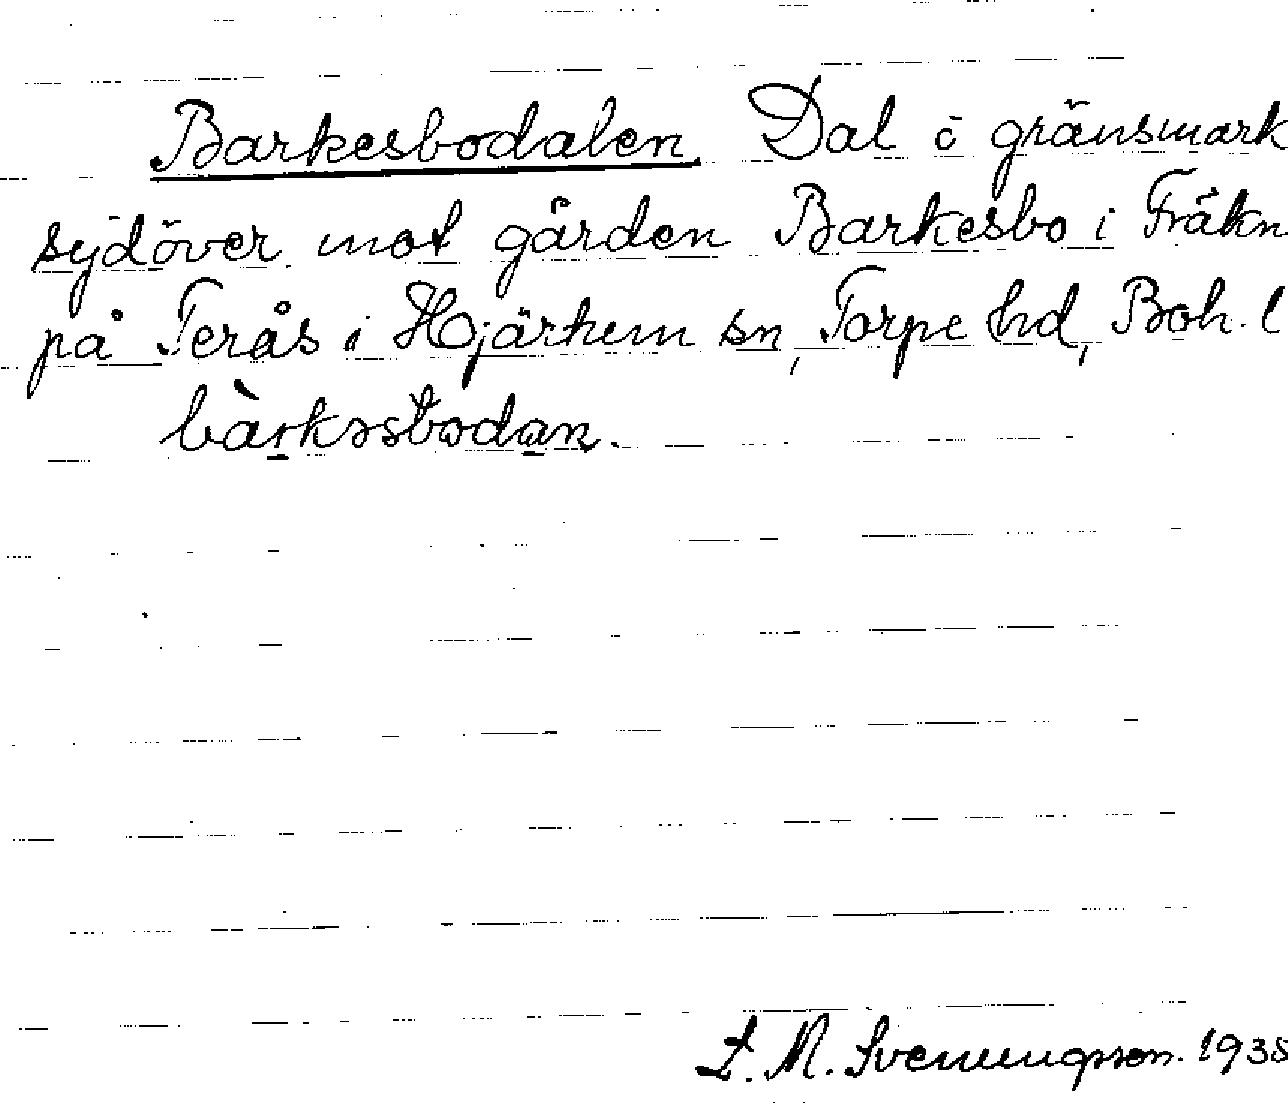 Barkesbodalen. Dal i gränsmark
sydöver mot gården Barkesbo i Fräkn
på Terås i Hjärtum sn, Torpe hd, Boh. l
bàrkəsbodan.
L. M. Svenungsson. 1935